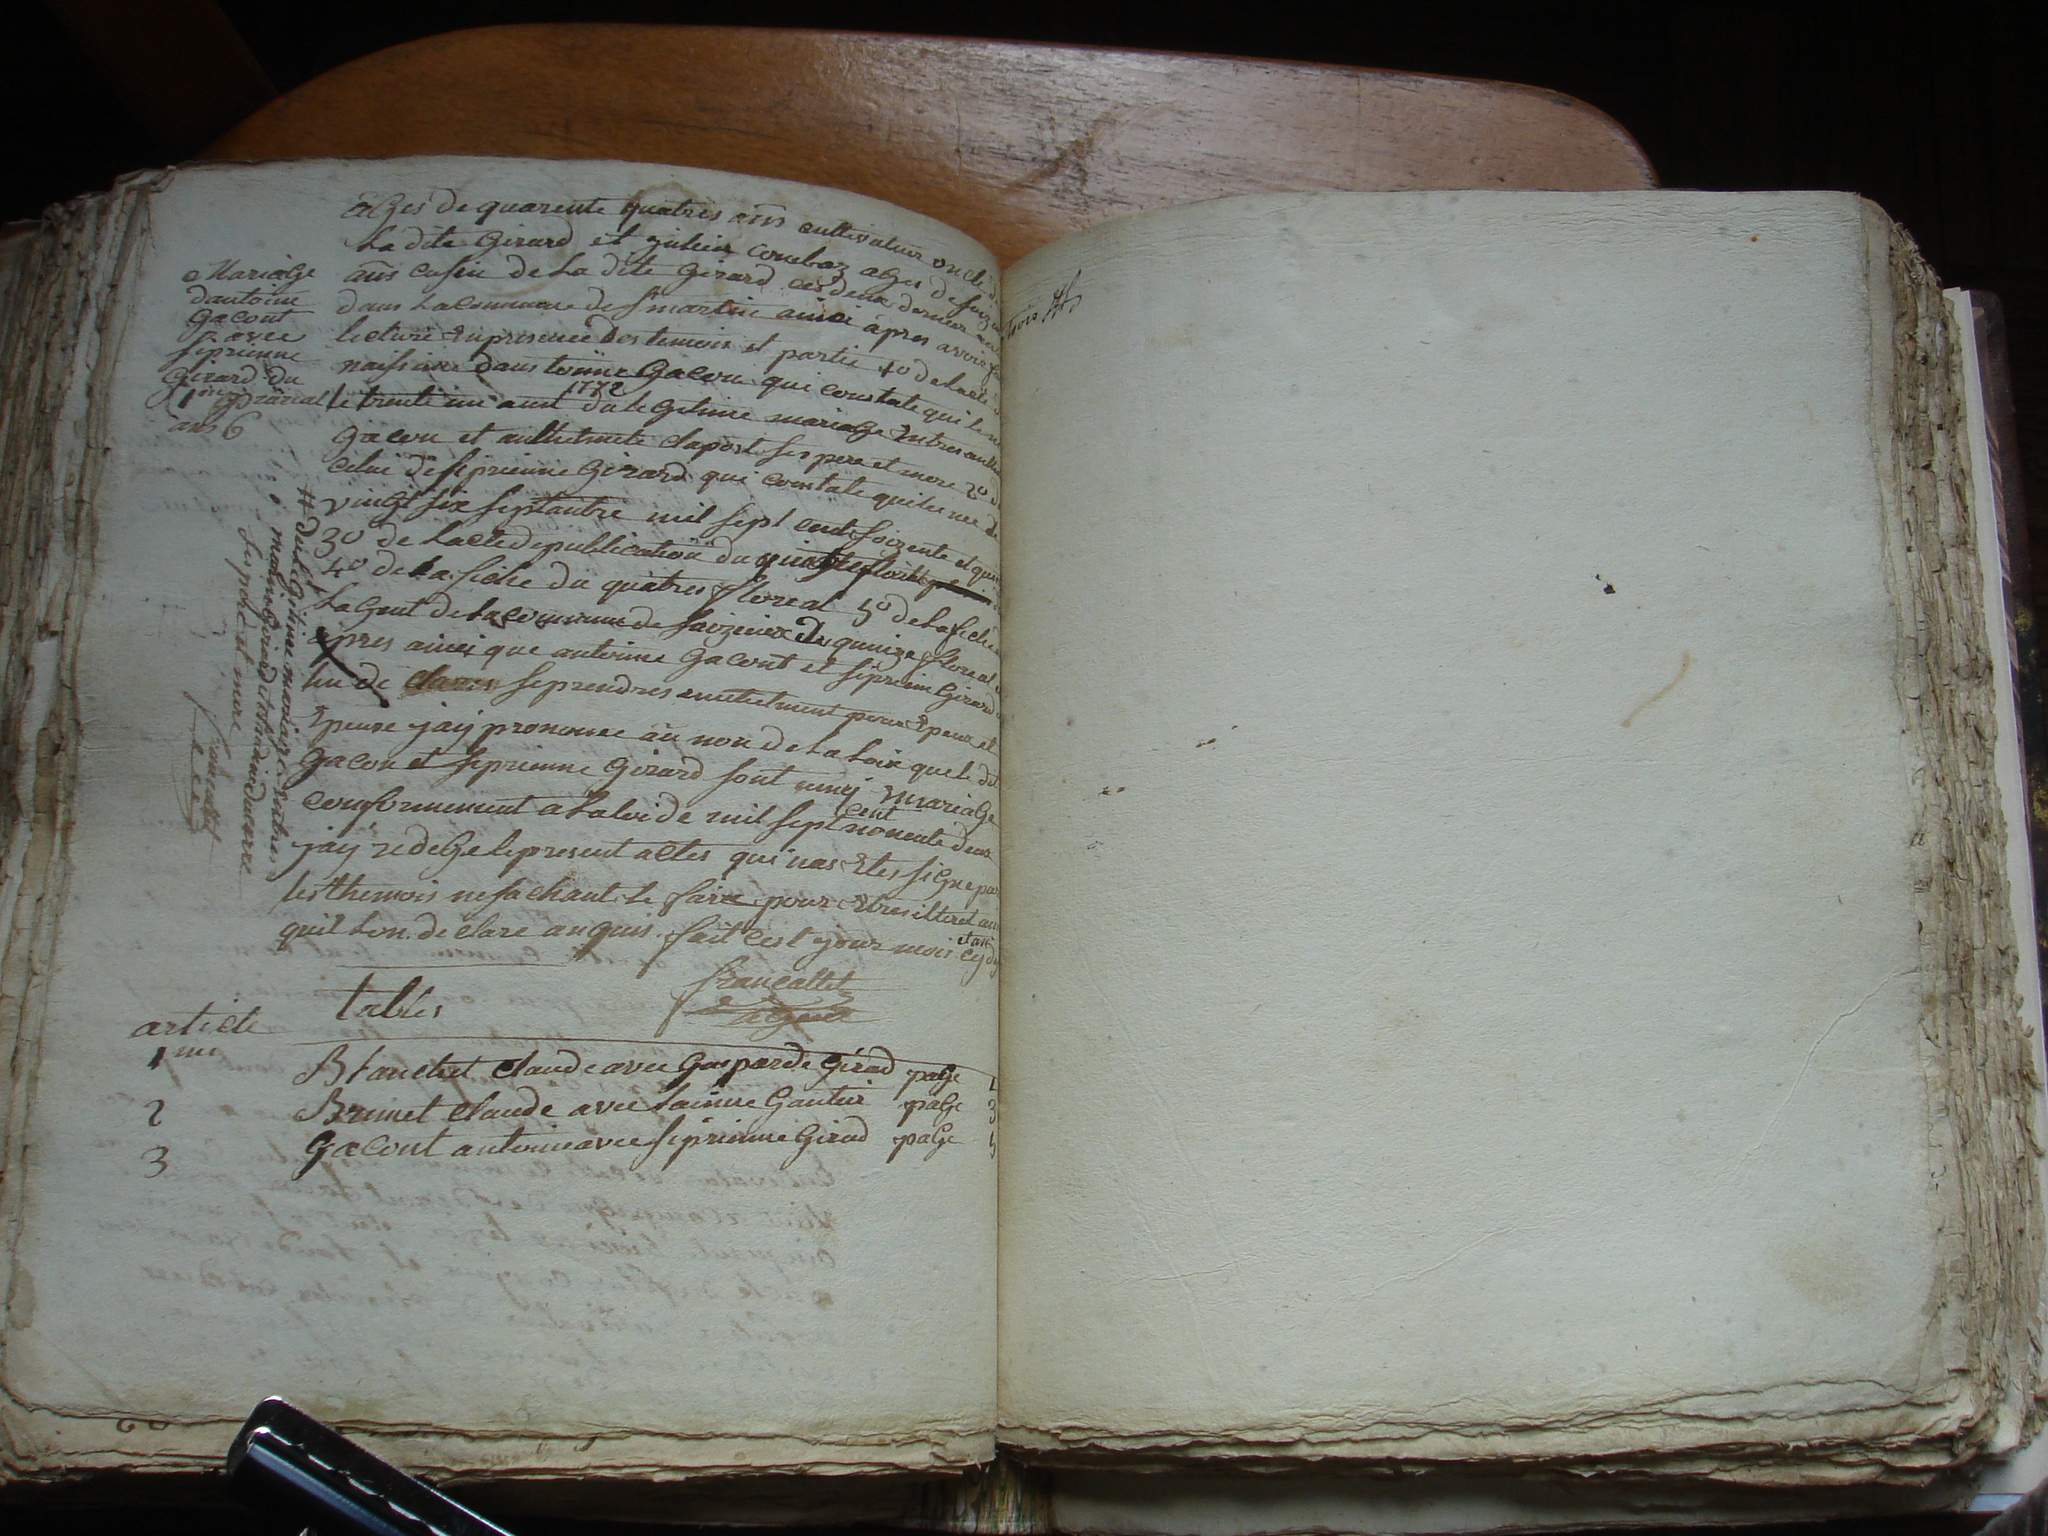 Ages de quarente quatres ans cultivateur oncle
La dite Girard et julien combaz ages de
ans cusin de La dite Girard ces deux dernier
dans La commune de st martin ainsi apres avoir
Lecture En presence des temoin et partie 1o de Lacte
naissance dantoinne Gacon qui constate quil
Le trente un aout 1772 du Legitime mariage Entres
Gacon et anthelmete Clapost ses pere et mere 2o
Celui de siprienne Girard qui constate quil est nee
vingt six septanbre mil sept cent soizente et
3o de Lacte de publication du
4o de La fiche du quatres floreal 5o de La fiche
Lagent de La commune de du quinze floreal
apres ainsi que antoinne Gacont et siprien Girard
de clares se prendres mutuelment pour Epeux et
Epeuse jaij prononce au non de La Loix que le dit
Gacon et siprienne Girard sont unij En mariage
conformement a La loi de mil sept cent nonente deux
jaij redege le present actes qui nas Etes signe par
les themois ne sachant le faire pour Etres
quil Lon de clare anquis. fait cest jour mois et an cy
francallet
agent
Mariage
dantoine
Gacont
avec
siprienne
Girard du
floreal
ans 6
# du Legitime mariage Entres
Ses pere et mere
francallet
tables
article
1 Blanchet Claude avec Gasparde Girad page 1
2 Brunet Claude avec Gautier page 3
3 Gacont antoinne avec siprienne Girad page 5